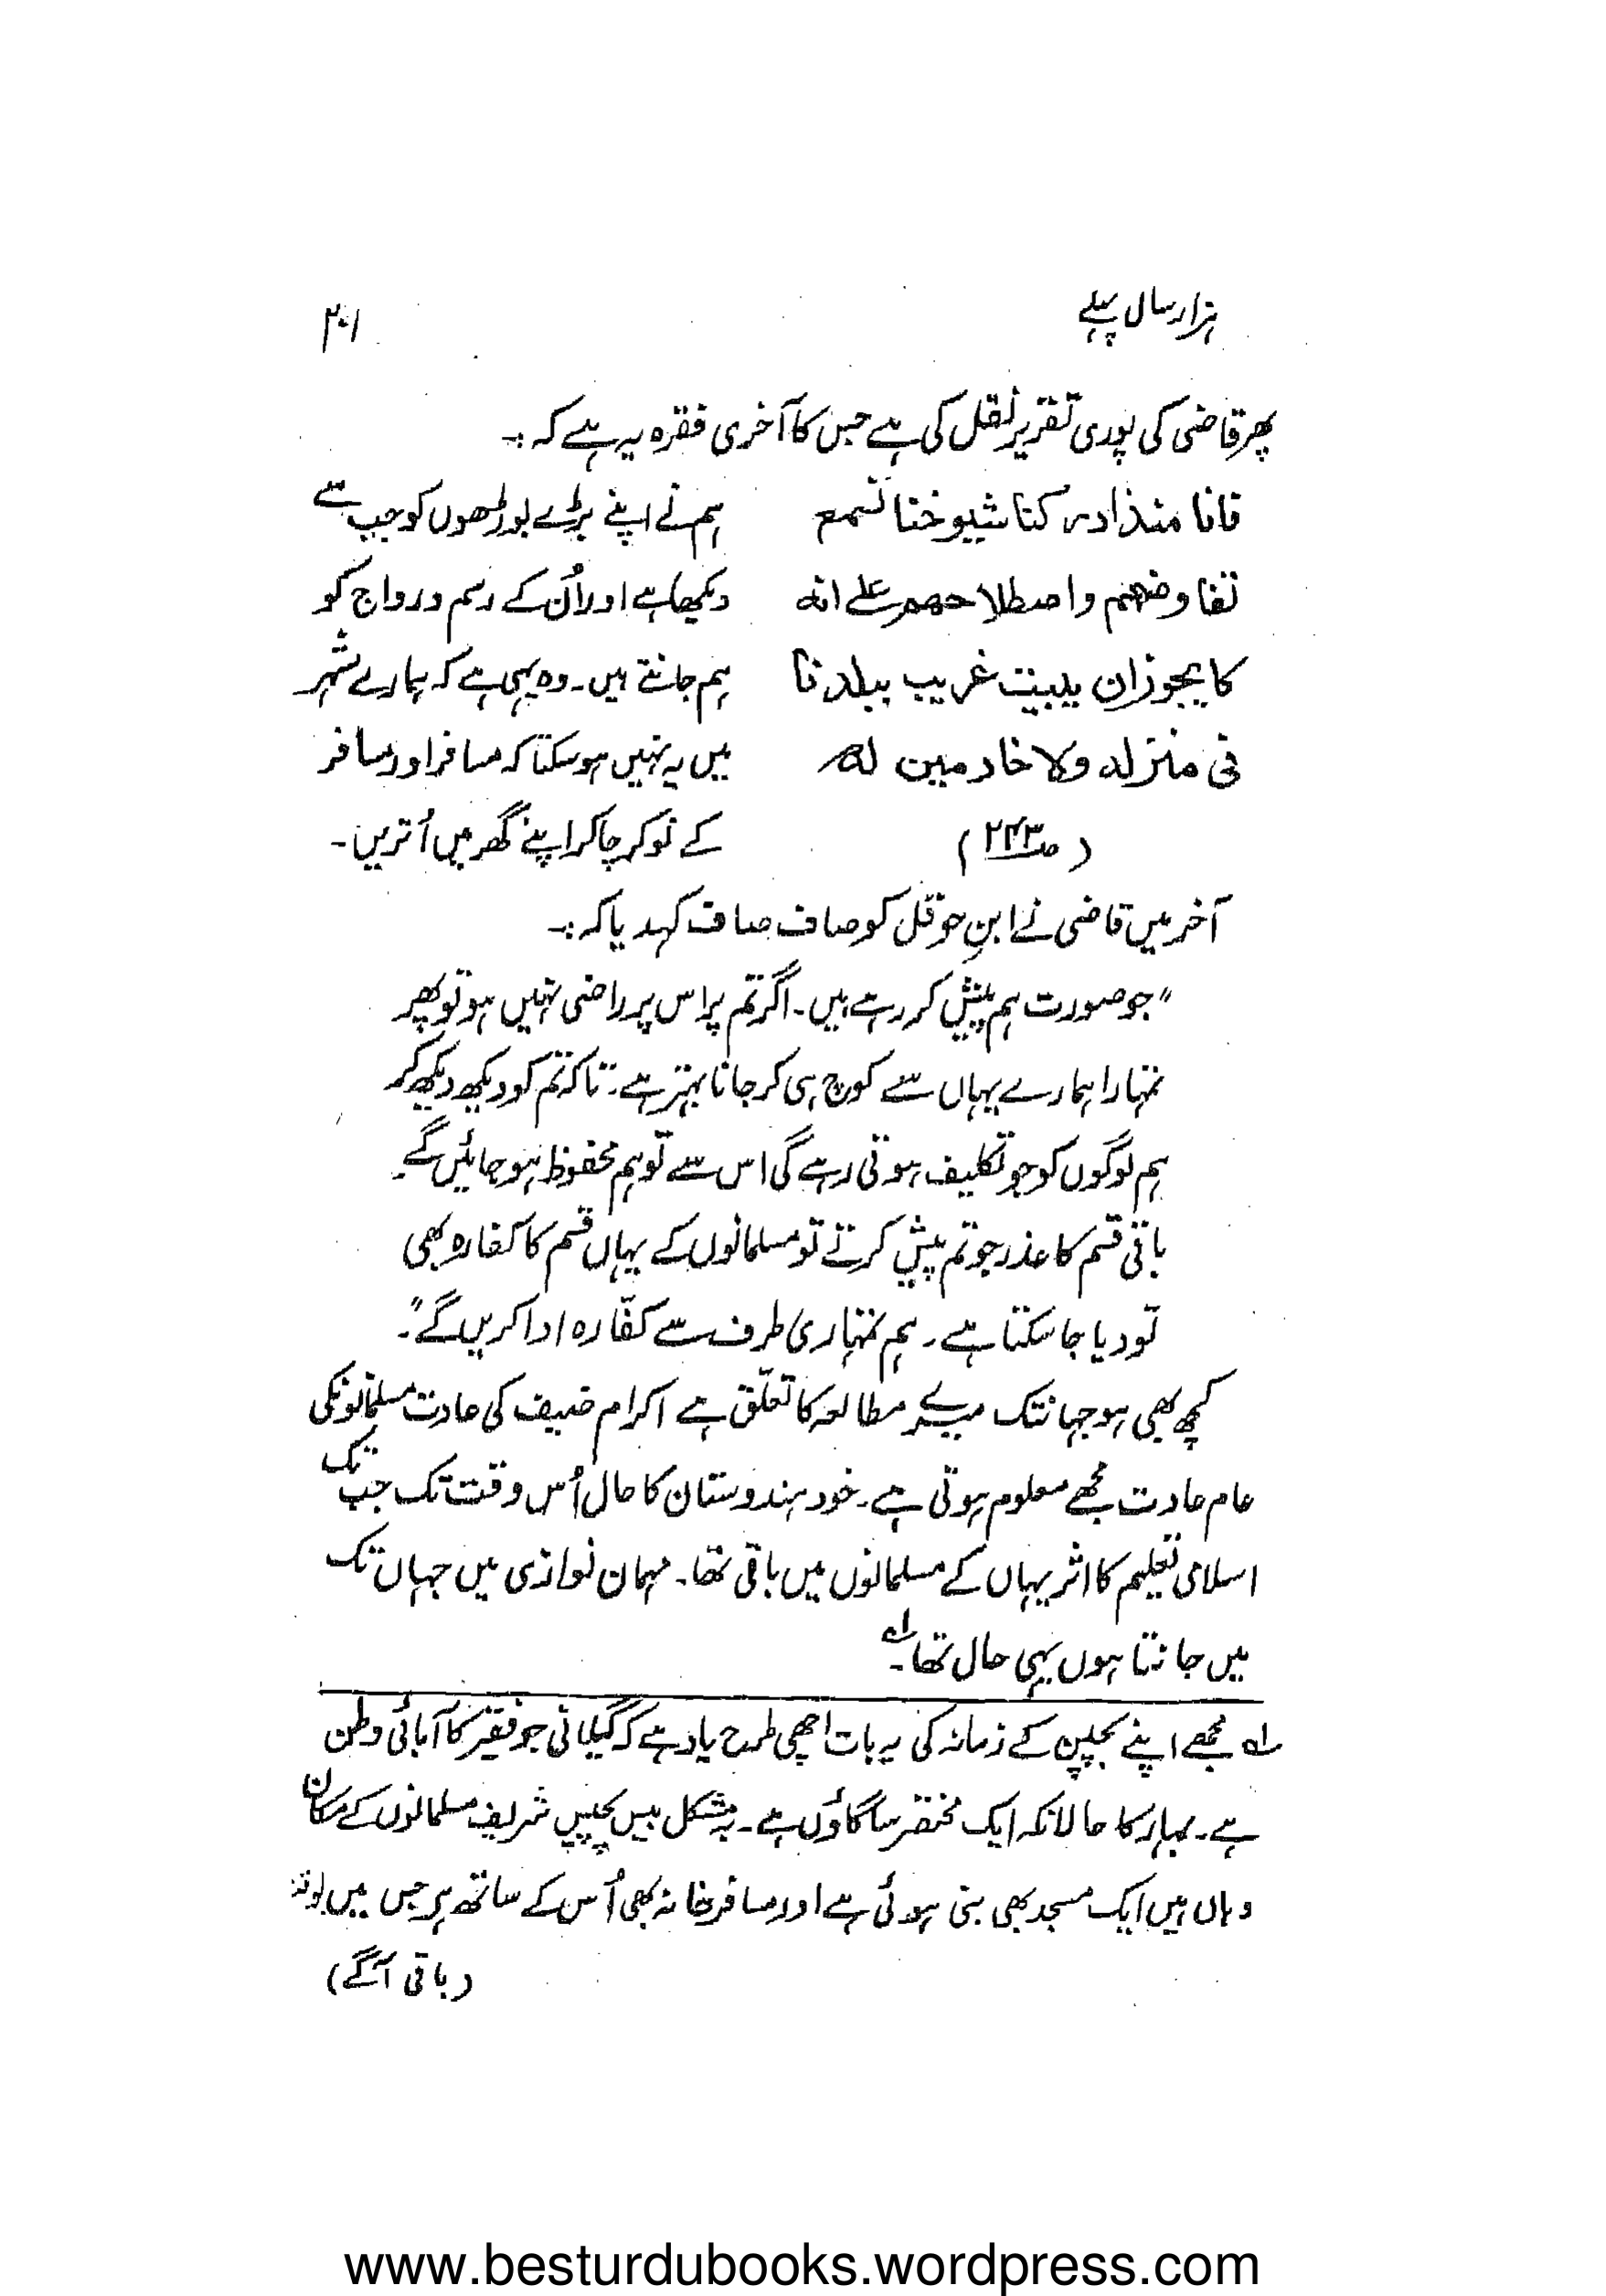 ہزار سال پہلے
۲۰۱
پھر قاضی کی پوری تقریر نقل کی ہے جس کا آخری فقرہ یہ ہے کہ :۔
فانا منذ ادرکنا شیوخنا نسمع
تفاوضہم واصطلاحھم علے انہ
لایجوز ان یبیت غریب ببلدنا
فی منزلہ ولا خادمین لہ
(ص۲۴۳)
ہم نے اپنے بڑے بوڑھوں کو جب سے
دیکھا ہے اور اُن کے رسم و رواج کو
ہم جانتے ہیں۔ وہ یہی ہے کہ ہمارے شہر
میں یہ نہیں ہوسکتا کہ مسافر اور مسافر
کے نوکر چاکر اپنے گھر میں اُتریں۔
آخر میں قاضی نے ابن حوقل کو صاف صاف کہدیا کہ :۔
"جو صورت ہم پیش کر رہے ہیں۔ اگر تم پر اس پر راضی نہیں ہو تو پھر
تمہارا ہمارے یہاں سے کوچ ہی کر جانا بہتر ہے۔ تاکہ تم کو دیکھ دیکھ کر
ہم لوگوں کو جو تکلیف ہوتی رہے گی اس سے تو ہم محفوظ ہو جائیں گے۔
باقی قسم کا عذر جو تم پیش کرتے تو مسلمانوں کے یہاں قسم کا کفارہ بھی
تو دیا جاسکتا ہے۔ ہم تمہاری طرف سے کفّارہ ادا کریں گے"۔
کچھ بھی ہو جہانتک میرے مطالعہ کا تعلّق ہے اکرام ضیف کی عادت مسلمانونکی
عام عادت مجھے معلوم ہوتی ہے۔ خود ہندوستان کا حال اُس وقت تک جب تک
اسلامی تعلیم کا اثر یہاں کے مسلمانوں میں باقی تھا۔ مہمان نوازی میں جہاں تک
میں جانتا ہوں یہی حال تھا۔ لہ
لہ مجھے اپنے بچپن کے زمانہ کی یہ بات اچھی طرح یاد ہے کہ گیلانی جو فقیر کا آبائی وطن
ہے۔ بہار کا حالانکہ ایک مختصر سا گاؤں ہے۔ بہ مشکل بیس پچیس شریف مسلمانوں کے مکان
وہاں ہیں ایک مسجد بھی بنی ہوئی ہے اور مسافر خانہ بھی اُس کے ساتھ ہر جس میں
(باقی آگے)
www.besturdubooks.wordpress.com